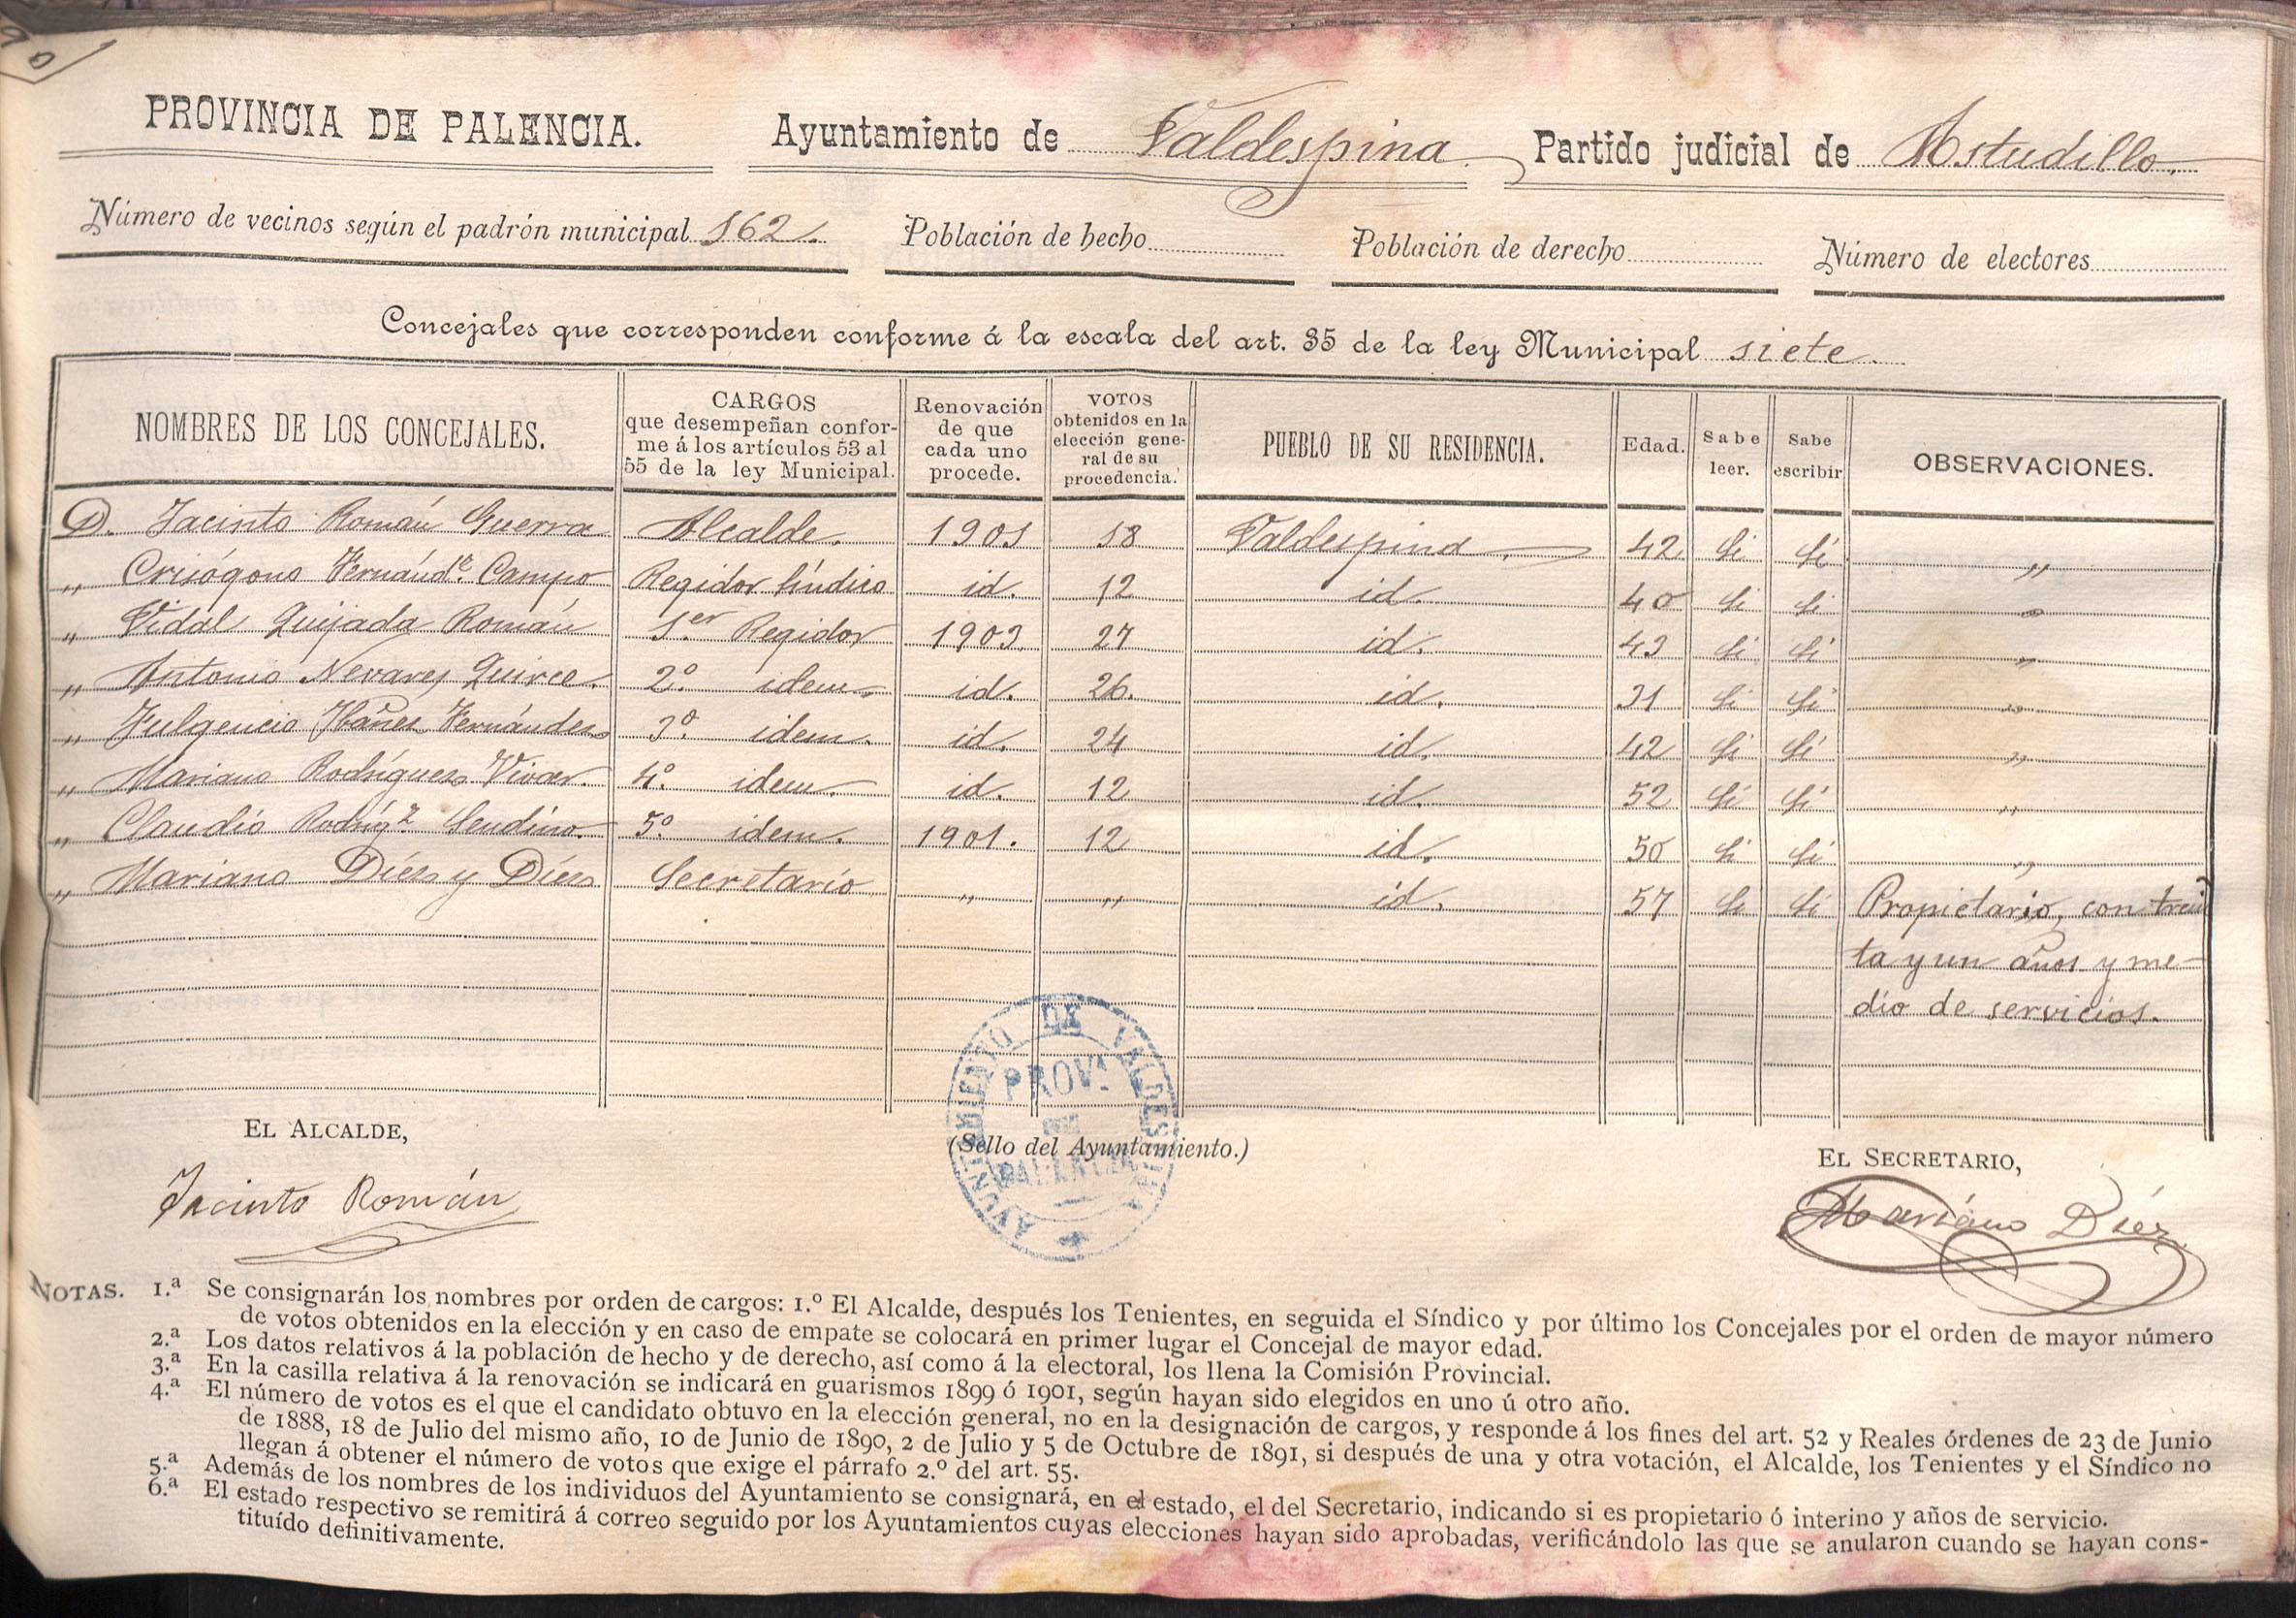 PROVINCIA DE PALENCIA. Ayuntamiento de Valdespina Partido judicial de Astudillo.
Número de vecinos según el padrón municipal 162. Población de hecho Población de derecho Número de electores
Concejales que corresponden conforme á la escala del art. 35 de la ley Municipal siete.
NOMBRES DE LOS CONCEJALES. CARGOS que desempeñan confor- me á los artículos 53 al 55 de la ley Municipal. Renovación de que cada uno procede. VOTOS obtenidos en la elección gene- ral de su procedencia. PUEBLO DE SU RESIDENCIA. Edad. Sabe leer. Sabe escribir OBSERVACIONES.
D. Jacinto Román Guerra Alcalde. 1901 18 Valdespina. 42 Si Si "
" Crisógono Fernánd.e Campo Regidor Síndico id. 12 id. 40 Si Si "
" Vidal Quijada Román 1.er Regidor 1903 27 id. 43 Si Si "
" Antonio Nevares Quirce. 2.º idem. id. 26. id. 31 Si Si "
" Fulgencio Ibáñez Fernández 3.º idem. id. 24 id. 42 Si Si "
" Mariano Rodríguez Vivar. 4.º idem. id. 12 id. 52 Si Si "
" Claudio Rodríg.z Sendino. 5.º idem. 1901. 12 id. 50 Si Si "
" Mariano Díez y Díez Secretario " " id. 57 Si Si Propietario, con trein
ta y un años y me-
dio de servicios.
AYUNTAMIENTO DE VALDESPINA
PROV.ª
DE
PALENCIA
EL ALCALDE, (Sello del Ayuntamiento.) EL SECRETARIO,
Jacinto Román Mariano Díez
NOTAS. 1.ª Se consignarán los nombres por orden de cargos: 1.º El Alcalde, después los Tenientes, en seguida el Síndico y por último los Concejales por el orden de mayor número
de votos obtenidos en la elección y en caso de empate se colocará en primer lugar el Concejal de mayor edad.
2.ª Los datos relativos á la población de hecho y de derecho, así como á la electoral, los llena la Comisión Provincial.
3.ª En la casilla relativa á la renovación se indicará en guarismos 1899 ó 1901, según hayan sido elegidos en uno ú otro año.
4.ª El número de votos es el que el candidato obtuvo en la elección general, no en la designación de cargos, y responde á los fines del art. 52 y Reales órdenes de 23 de Junio
de 1888, 18 de Julio del mismo año, 10 de Junio de 1890, 2 de Julio y 5 de Octubre de 1891, si después de una y otra votación, el Alcalde, los Tenientes y el Síndico no
llegan á obtener el número de votos que exige el párrafo 2.º del art. 55.
5.ª Además de los nombres de los individuos del Ayuntamiento se consignará, en el estado, el del Secretario, indicando si es propietario ó interino y años de servicio.
6.ª El estado respectivo se remitirá á correo seguido por los Ayuntamientos cuyas elecciones hayan sido aprobadas, verificándolo las que se anularon cuando se hayan cons-
tituído definitivamente.